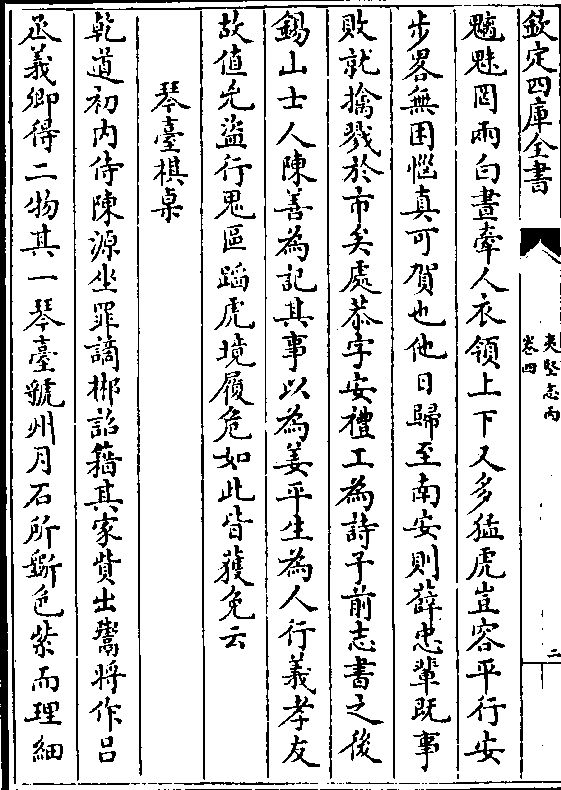 欽定四庫全書
夷堅志丙
卷四
二
魑魅罔兩白晝牽人衣領上下又多猛虎豈容平行安
步畧無困惱真可賀也他日歸至南安則薛忠輩既事
敗就擒戮於市矣處恭字安禮工為詩予前志書之後
錫山士人陳善為記其事以為姜平生為人行義孝友
故值兇盜行鬼區蹈虎境履危如此皆獲免云
琴臺棋桌
乾道初内侍陳源坐罪謫郴詔籍其家貲出鬻將作吕
丞義卿得二物其一琴臺虢州月石所斲色紫而理細